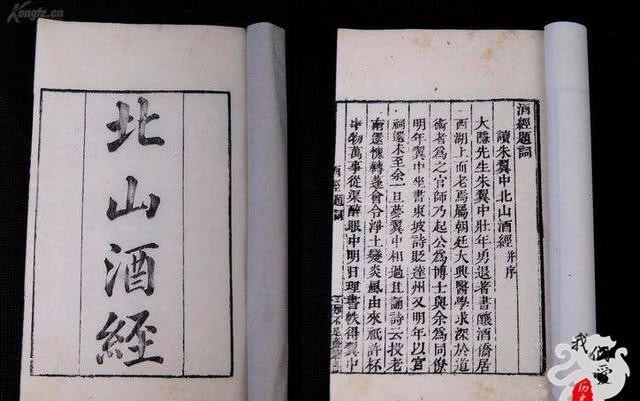 Kongfz.cn
北山酒經
酒經題詞
讀朱翼中北山酒經 并序
大隱先生朱翼中壯年勇退著書釀酒僑居
西湖上而老焉屬朝廷大興醫學求深於道
術者為之官師乃起公為博士與余為同僚
明年翼中坐書東坡詩貶達州又明年以宮
祠還未至余一旦夢翼中相過且誦詩云投老
南還愧轉蓬會令淨土變炎風由來祇許杯
中物萬事從渠醉眼中明日理書帙得翼中
酒經題詞
我
愛